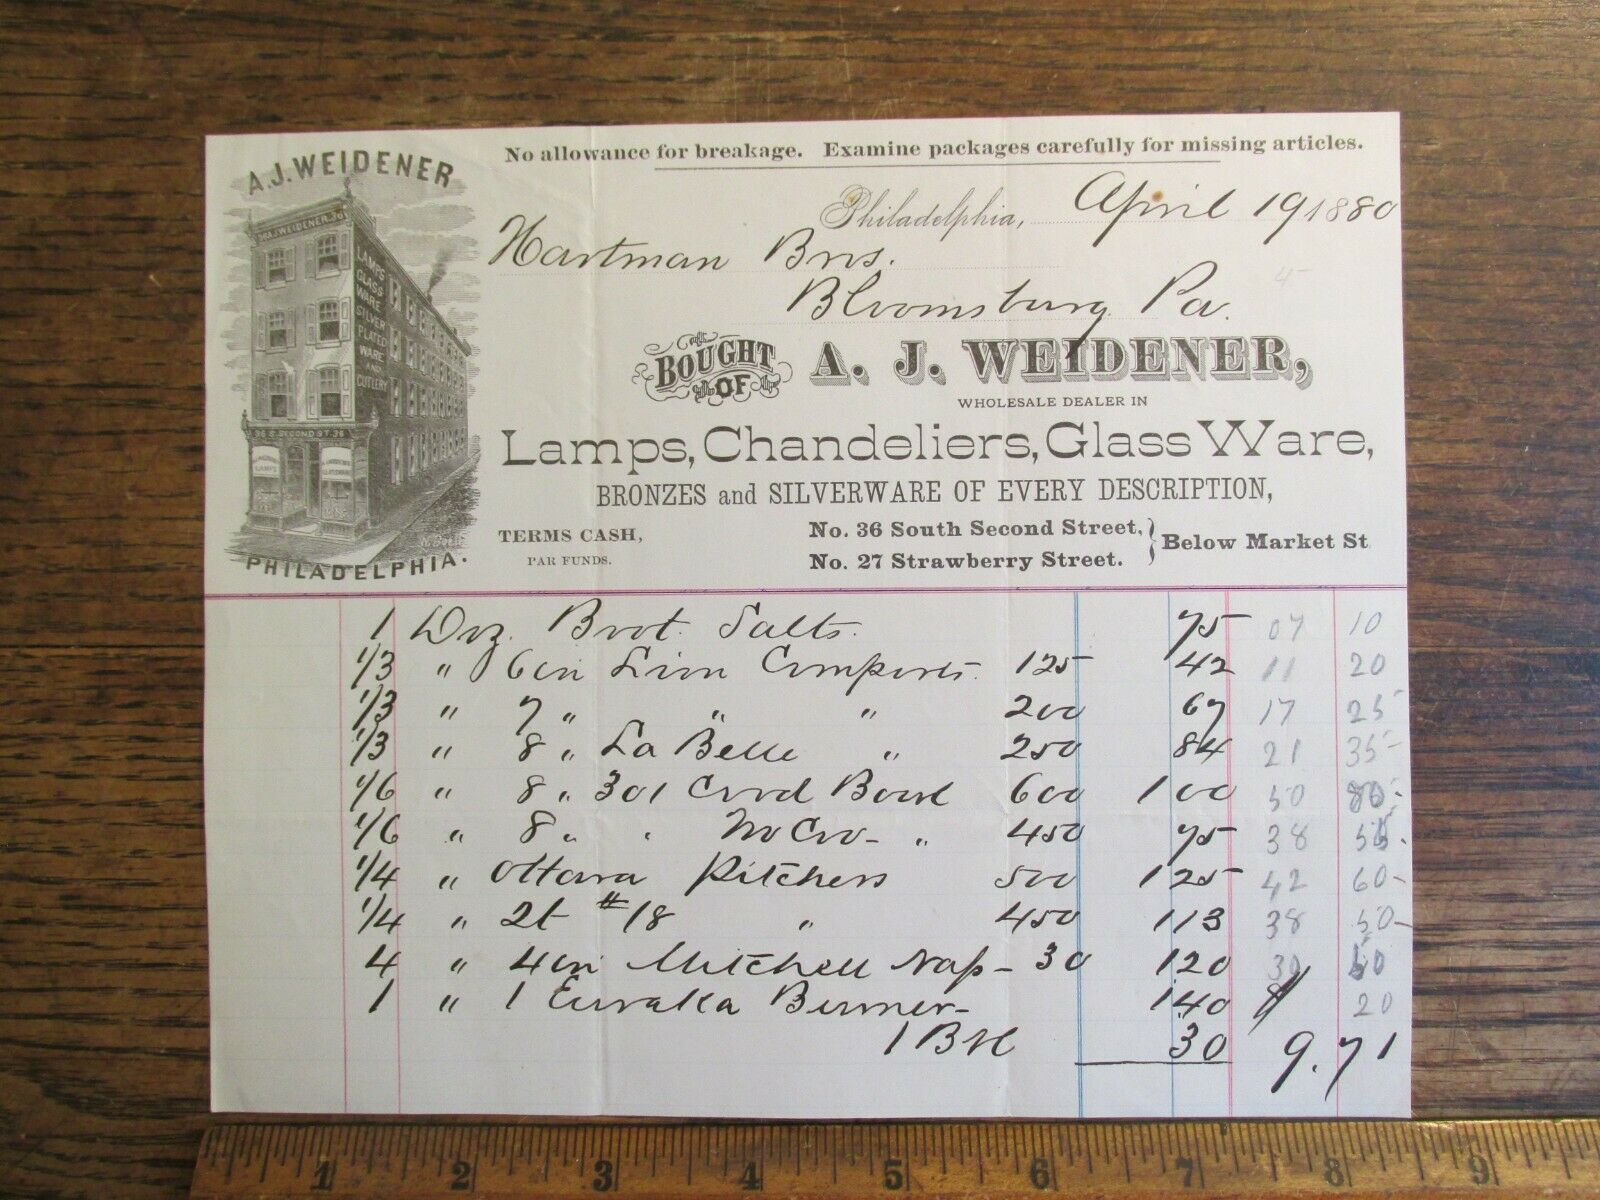 No allowance for breakage. Examine packages carefully for missing articles.
A. J. WEIDENER
Philadelphia, April 19 1880
Hartman Bros.
Bloomsburg Pa.
A.J. WEIDENER. 36
LAMPS
GLASS
WARE
SILVER
PLATED
WARE
AND
CUTLERY
36 S. SECOND ST. 36
LAMPS
GLASSWARE
PHILADELPHIA.
BOUGHT OF A. J. WEIDENER,
WHOLESALE DEALER IN
Lamps, Chandeliers, Glass Ware,
BRONZES and SILVERWARE OF EVERY DESCRIPTION,
TERMS CASH,
PAR FUNDS.
No. 36 South Second Street,
No. 27 Strawberry Street.
Below Market St
1 Doz. Brot. Salts. 75 07 10
1/3 " 6in Lion Comports. 125 42 11 20
1/3 " 7 " " " 200 67 17 25
1/3 " 8 " La Belle " 250 84 21 35
1/6 " 8 " 301 Cvrd Bowl 600 100 50 80
1/6 " 8 " " No Cvr - " 450 75 38 55
1/4 " Ottawa Pitchers 500 125 42 60
1/4 " 2t #18 " 450 113 38 50
4 " 4in Mitchell Nap - 30 120 30 50
1 " 1 Euraka Burner - 140 20
1 Bbl 30 9.71
1 2 3 4 5 6 7 8 9